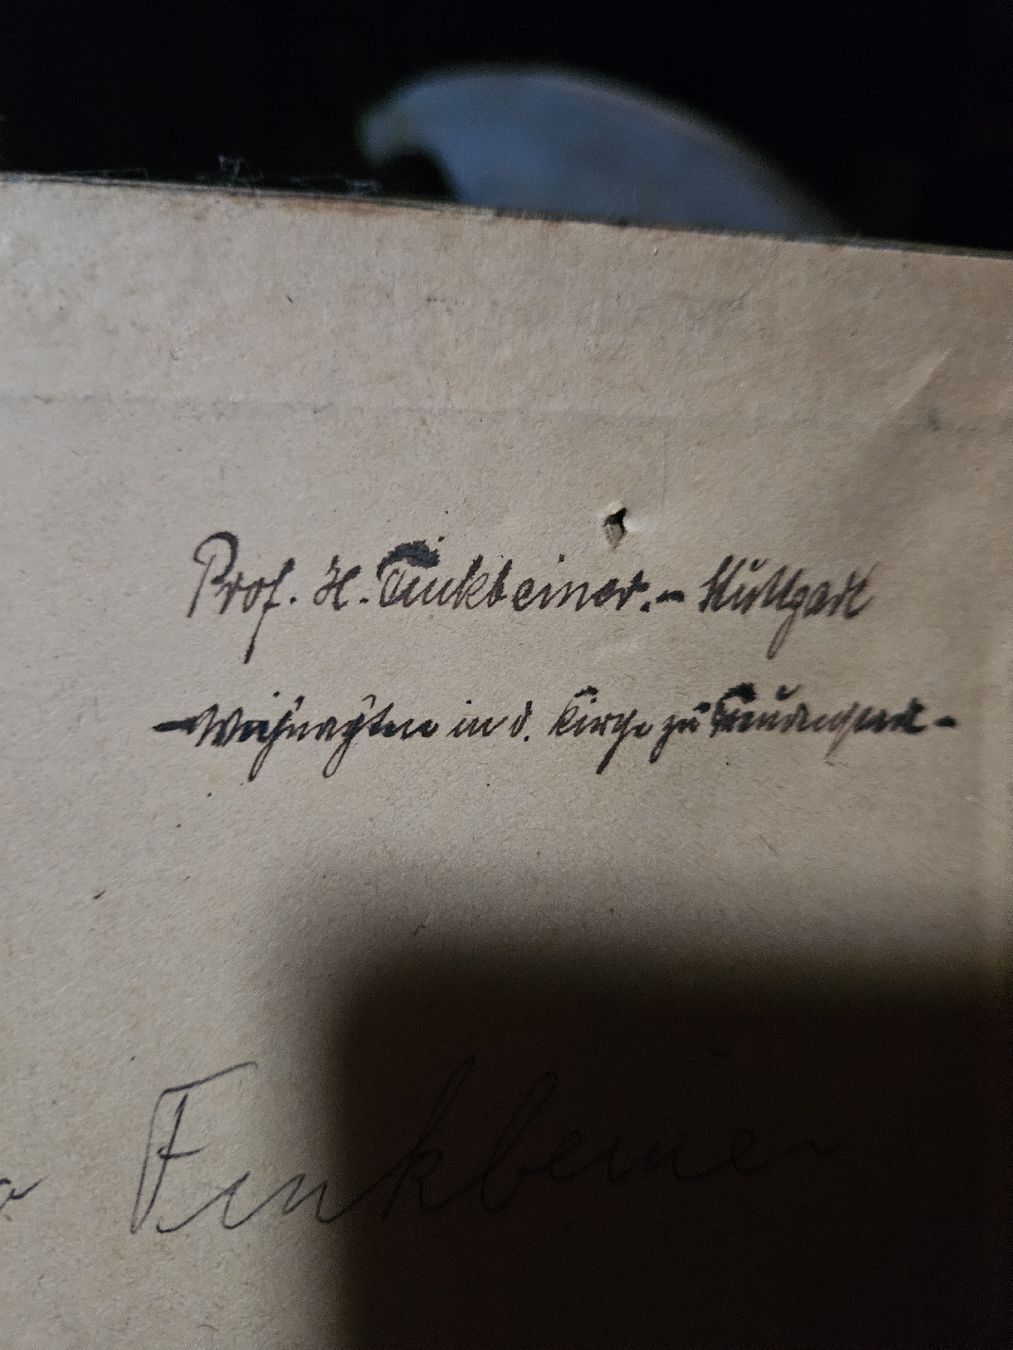 Prof. H. Finkbeiner. – Stuttgart
– Weihnachten in d. Kirche zu Freudenstadt –
Finkbeiner